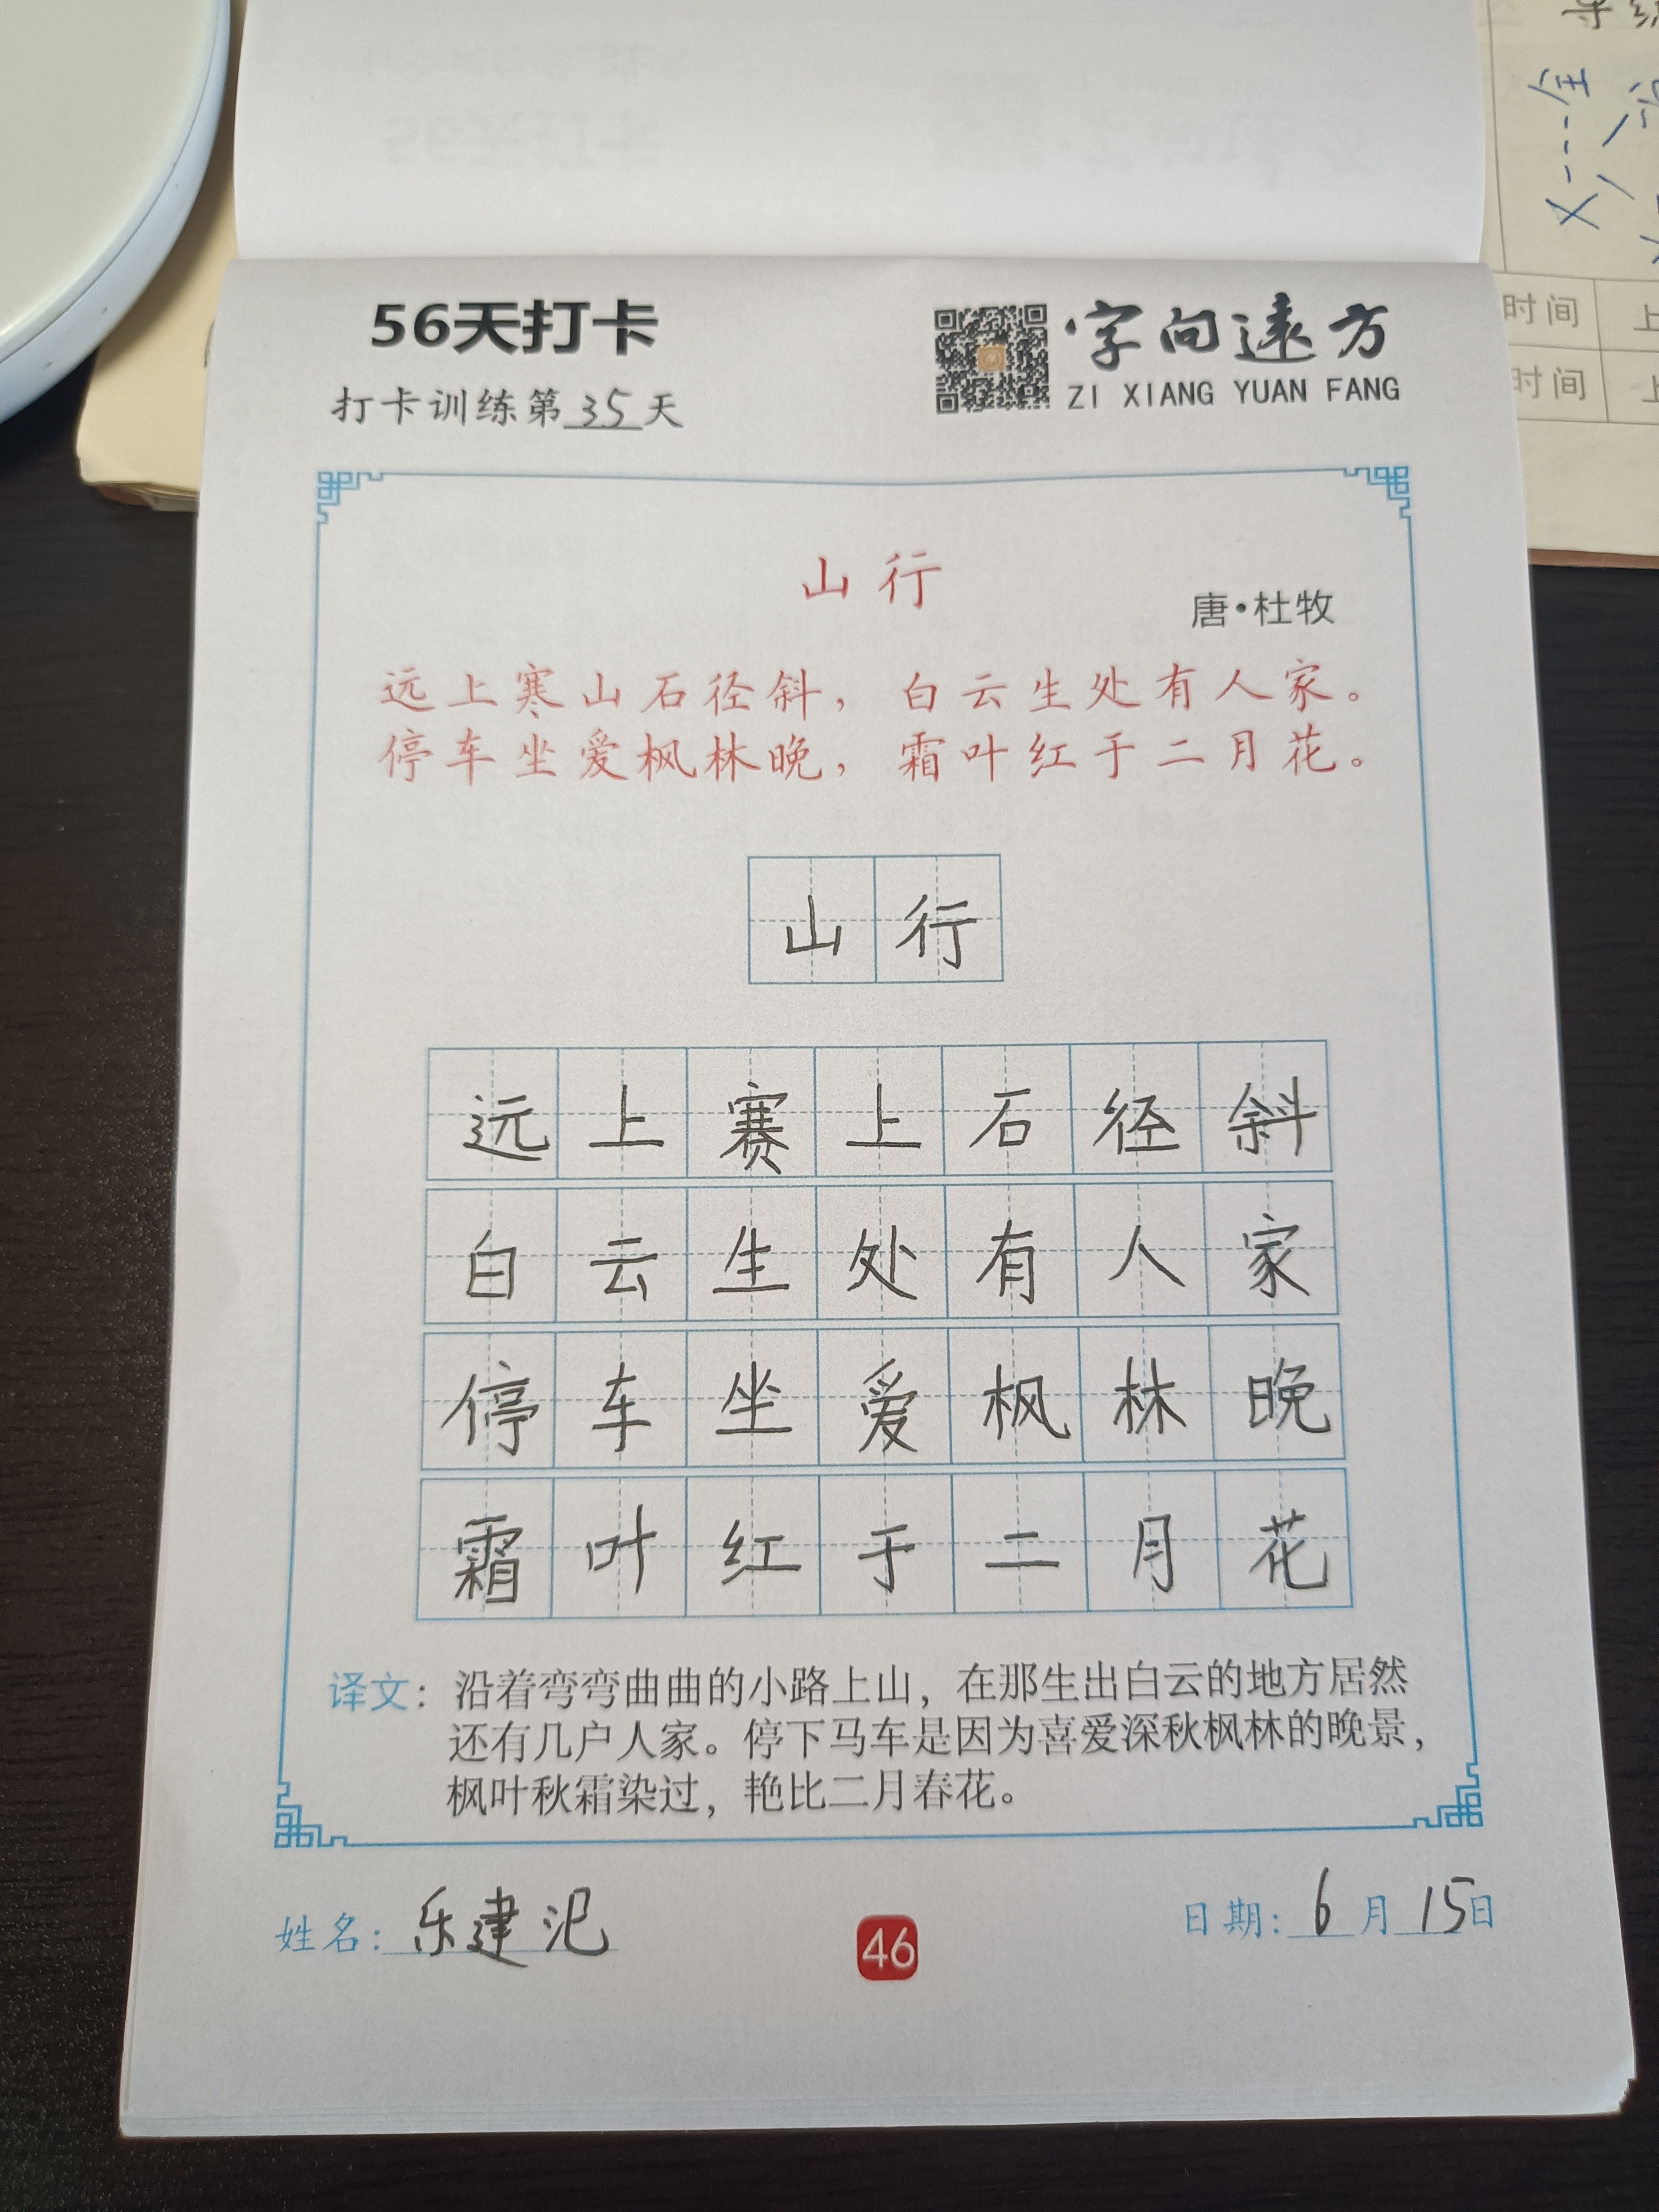 56天打卡
字向远方
ZI XIANG YUAN FANG
打卡训练第35天
山行
唐·杜牧
远上寒山石径斜，白云生处有人家。
停车坐爱枫林晚，霜叶红于二月花。
山行
远上赛上石径斜
白云生处有人家
停车坐爱枫林晚
霜叶红于二月花
译文：沿着弯弯曲曲的小路上山，在那生出白云的地方居然
还有几户人家。停下马车是因为喜爱深秋枫林的晚景，
枫叶秋霜染过，艳比二月春花。
姓名：乐建汜
46
日期：6月15日
时间 上
时间 上